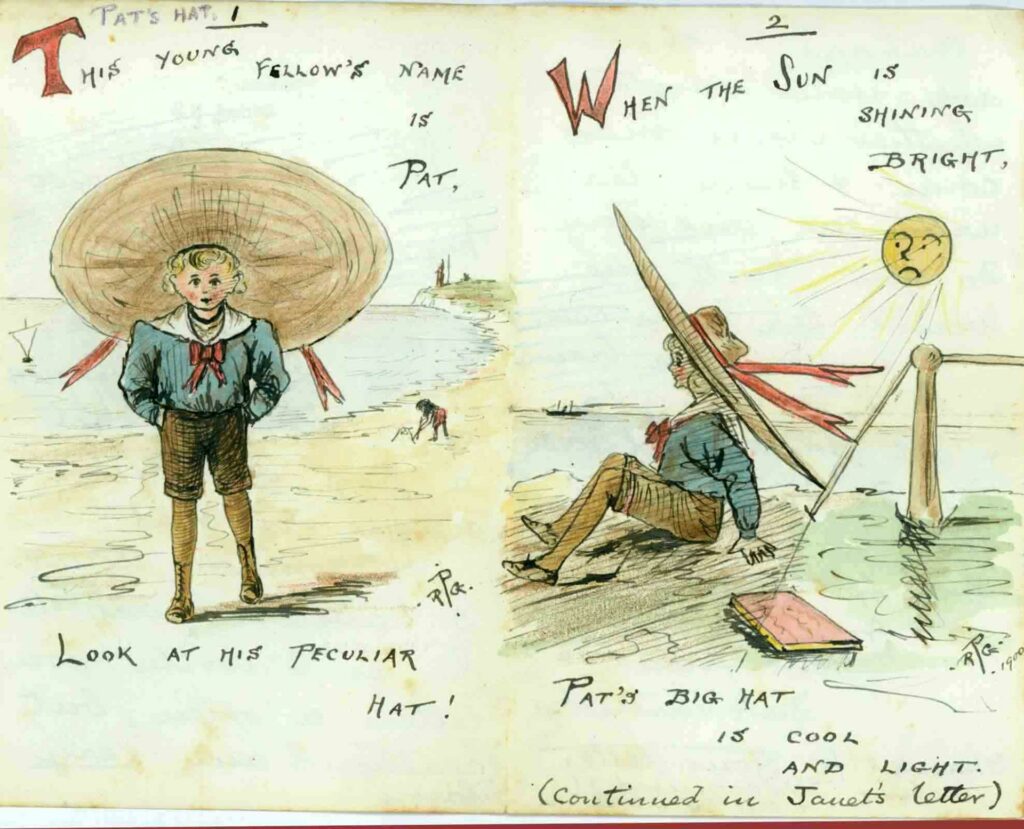 PAT'S HAT. 1
THIS YOUNG FELLOW'S NAME
IS
PAT,
RPG.
LOOK AT HIS PECULIAR
HAT!
2
WHEN THE SUN IS
SHINING
BRIGHT,
RPG.
1900
PAT'S BIG HAT
IS COOL
AND LIGHT.
(Continued in Janet's letter)